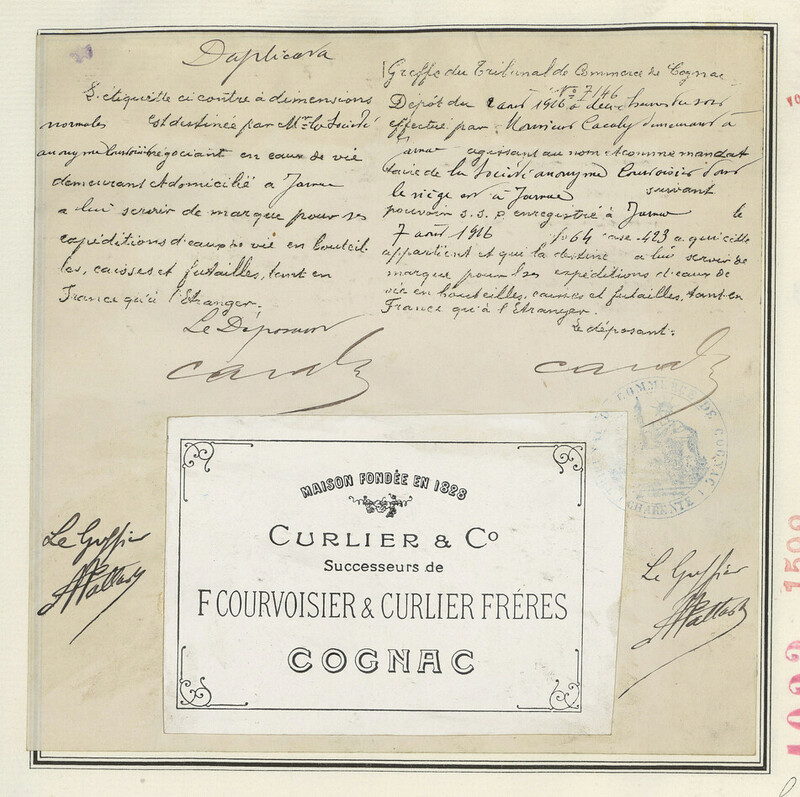 Duplicata
L'étiquette ci contre à dimensions
normales est destinée par Mr la Société
anonyme Courvoisier négociant en eaux de vie
demeurant et domicilié à Jarnac
a lui servir de marque pour ses
expéditions d'eaux de vie en bouteil
les, caisses et futailles, tant en
France qu'à l'Etranger.
Le Déposant
Greffe du Tribunal de Commerce de Cognac
No 7146
Dépôt du 2 août 1916 à deux heures du soir
effectué par Monsieur demeurant à
Jarnac agissant au nom et comme mandat
taire de la Société anonyme Courvoisier dont
le siège est à Jarnac suivant
pouvoir s.s.p enregistré à Jarnac le
7 août 1916 fo 64 case 423 a qui cette
appartient et qui la destine a lui servir de
marque pour ses expéditions d'eaux de
vie en bouteilles, caisses et futailles, tant en
France qu'à l'Etranger.
Le déposant:
COMMERCE DE COGNAC
CHARENTE
MAISON FONDÉE EN 1828
CURLIER & Co
Successeurs de
F COURVOISIER & CURLIER FRÉRES
COGNAC
Le Greffier
Le Greffier